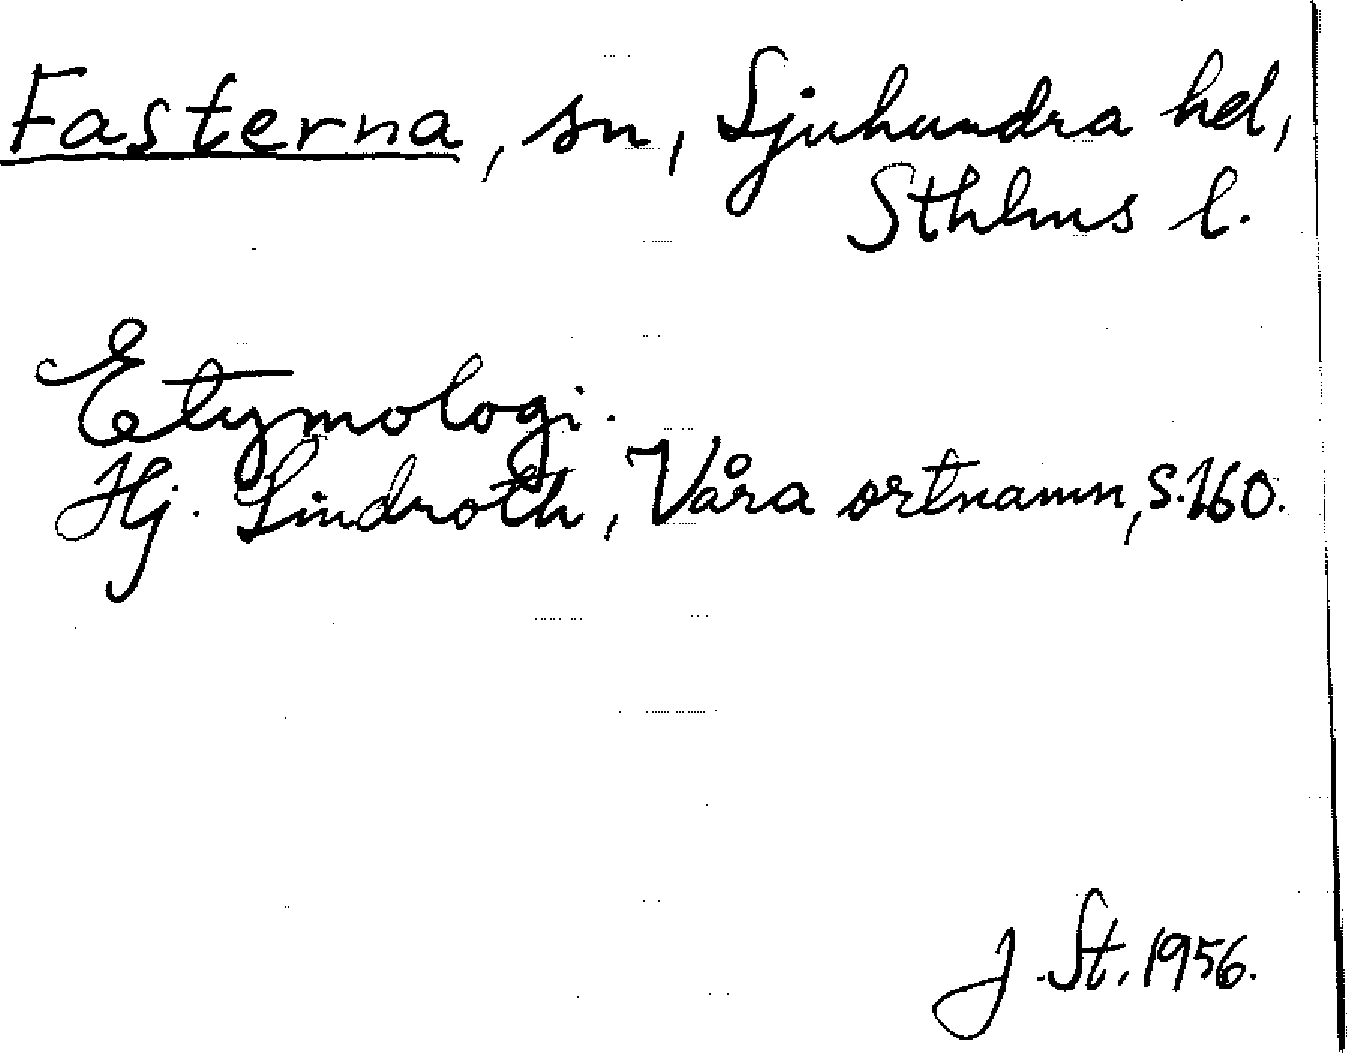 Fasterna, sn, Sjuhundra hd,
Sthlms l.
Etymologi.
Hj. Lindroth, Våra ortnamn, s. 160.
J. St. 1956.